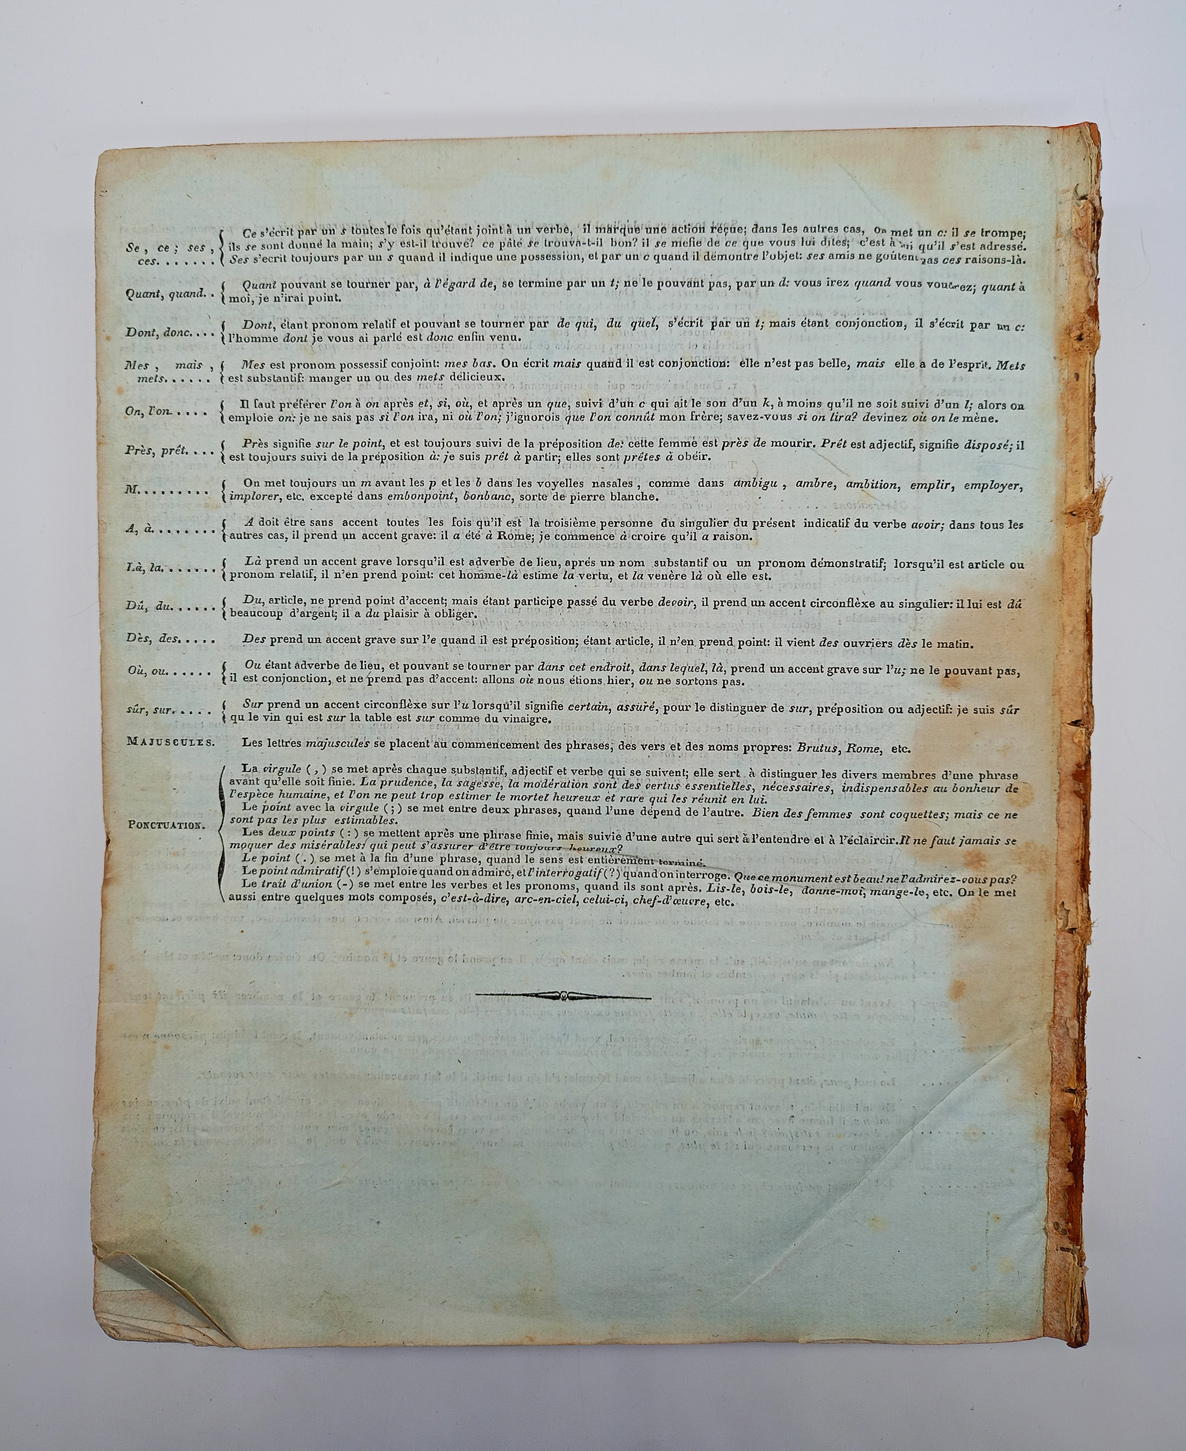 Ce s'écrit par un s toutes le fois qu'étant joint à un verbe, il marque une action reçue; dans les autres cas, on met un c: il se trompe;
Se, ce; ses, ils se sont donné la main; s'y est-il trouvé? ce pâté se trouva-t-il bon? il se méfie de ce que vous lui dites; c'est à qu'il s'est adressé.
ces. . . . . . . Ses s'écrit toujours par un s quand il indique une possession, et par un c quand il démontre l'objet: ses amis ne goûtent pas ces raisons-là.
Quant, quand. . Quant pouvant se tourner par, à l'égard de, se termine par un t; ne le pouvant pas, par un d: vous irez quand vous voudrez; quant à
moi, je n'irai point.
Dont, donc. . . . Dont, étant pronom relatif et pouvant se tourner par de qui, du quel, s'écrit par un t; mais étant conjonction, il s'écrit par un c:
l'homme dont je vous ai parlé est donc enfin venu.
Mes, mais, Mes est pronom possessif conjoint: mes bas. On écrit mais quand il est conjonction: elle n'est pas belle, mais elle a de l'esprit. Mets
mets. . . . . . est substantif: manger un ou des mets délicieux.
On, l'on. . . . . Il faut préférer l'on à on après et, si, où, et après un que, suivi d'un c qui ait le son d'un k, à moins qu'il ne soit suivi d'un l; alors on
emploie on: je ne sais pas si l'on ira, ni où l'on; j'ignorois que l'on connût mon frère; savez-vous si on lira? devinez où on le mène.
Près, prêt. . . . Près signifie sur le point, et est toujours suivi de la préposition de: cette femme est près de mourir. Prêt est adjectif, signifie disposé; il
est toujours suivi de la préposition à: je suis prêt à partir; elles sont prêtes à obéir.
M. . . . . . . . . On met toujours un m avant les p et les b dans les voyelles nasales, comme dans ambigu, ambre, ambition, emplir, employer,
implorer, etc. excepté dans embonpoint, bonbanc, sorte de pierre blanche.
A, à. . . . . . . . A doit être sans accent toutes les fois qu'il est la troisième personne du singulier du présent indicatif du verbe avoir; dans tous les
autres cas, il prend un accent grave: il a été à Rome; je commence à croire qu'il a raison.
Là, la. . . . . . . Là prend un accent grave lorsqu'il est adverbe de lieu, aprés un nom substantif ou un pronom démonstratif; lorsqu'il est article ou
pronom relatif, il n'en prend point: cet homme-là estime la vertu, et la venère là où elle est.
Dû, du. . . . . . Du, article, ne prend point d'accent; mais étant participe passé du verbe devoir, il prend un accent circonflèxe au singulier: il lui est dû
beaucoup d'argent; il a du plaisir à obliger.
Dès, des. . . . . Des prend un accent grave sur l'e quand il est préposition; étant article, il n'en prend point: il vient des ouvriers dès le matin.
Où, ou. . . . . . Ou étant adverbe de lieu, et pouvant se tourner par dans cet endroit, dans lequel, là, prend un accent grave sur l'u; ne le pouvant pas,
il est conjonction, et ne prend pas d'accent: allons où nous étions hier, ou ne sortons pas.
sûr, sur. . . . . Sur prend un accent circonflèxe sur l'u lorsqu'il signifie certain, assuré, pour le distinguer de sur, préposition ou adjectif: je suis sûr
qu le vin qui est sur la table est sur comme du vinaigre.
MAJUSCULES. Les lettres majuscules se placent au commencement des phrases, des vers et des noms propres: Brutus, Rome, etc.
La virgule (,) se met après chaque substantif, adjectif et verbe qui se suivent; elle sert à distinguer les divers membres d'une phrase
avant qu'elle soit finie. La prudence, la sagesse, la modération sont des vertus essentielles, nécessaires, indispensables au bonheur de
l'espèce humaine, et l'on ne peut trop estimer le mortel heureux et rare qui les réunit en lui.
Le point avec la virgule (;) se met entre deux phrases, quand l'une dépend de l'autre. Bien des femmes sont coquettes; mais ce ne
PONCTUATION. sont pas les plus estimables.
Les deux points (:) se mettent après une phrase finie, mais suivie d'une autre qui sert à l'entendre et à l'éclaircir. Il ne faut jamais se
moquer des misérables: qui peut s'assurer d'être toujours heureux?
Le point (.) se met à la fin d'une phrase, quand le sens est entièrement terminé.
Le point admiratif (!) s'emploie quand on admire, et l'interrogatif (?) quand on interroge. Que ce monument est beau! ne l'admirez-vous pas?
Le trait d'union (-) se met entre les verbes et les pronoms, quand ils sont après. Lis-le, bois-le, donne-moi, mange-le, etc. On le met
aussi entre quelques mots composés, c'est-à-dire, arc-en-ciel, celui-ci, chef-d'œuvre, etc.